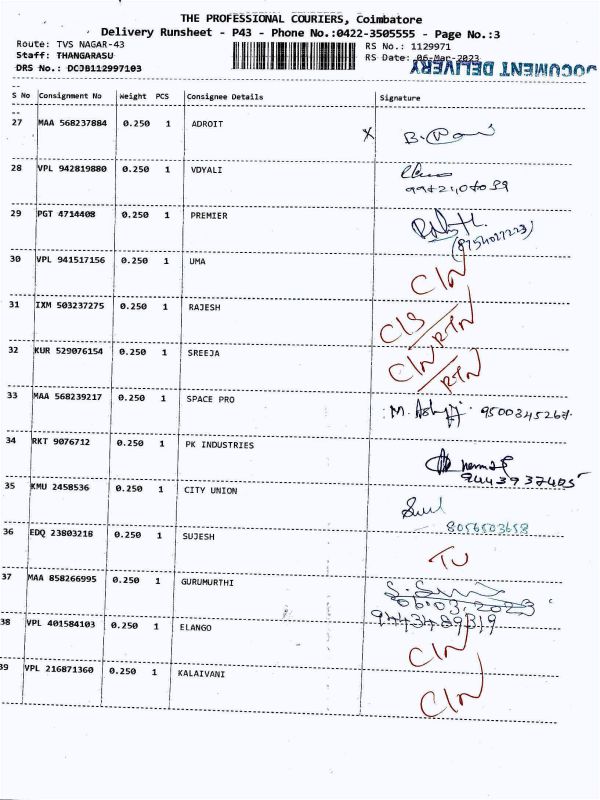 THE PROFESSIONAL COURIERS, Coimbatore
Delivery Runsheet - P43 - Phone No.:0422-3505555 - Page No.:3
Route: TVS NAGAR-43 RS No.: 1129971
Staff: THANGARASU RS Date: 06-Mar-2023
DRS No.: DCJB112997103 DOCUMENT DELIVERY
S No Consignment No Weight PCS Consignee Details Signature
27 MAA 568237884 0.250 1 ADROIT X
28 VPL 942819880 0.250 1 VDYALI
29 PGT 4714408 0.250 1 PREMIER
(8754027223)
30 VPL 941517156 0.250 1 UMA C/N
31 IXM 503237275 0.250 1 RAJESH C/S/RTN
32 KUR 529076154 0.250 1 SREEJA C/N/RTN
33 MAA 568239217 0.250 1 SPACE PRO 9500345267.
34 RKT 9076712 0.250 1 PK INDUSTRIES
9443937405
35 KMU 2458536 0.250 1 CITY UNION
8056503658
36 EDQ 23803218 0.250 1 SUJESH TU
37 MAA 858266995 0.250 1 GURUMURTHI
06.03.2023
9443489319
38 VPL 401584103 0.250 1 ELANGO C/N
39 VPL 216871360 0.250 1 KALAIVANI C/N